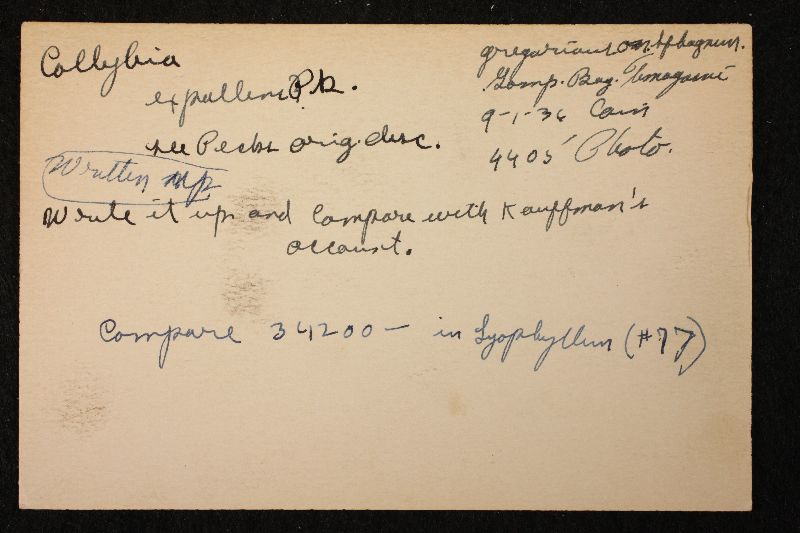 Collybia
expallens Pk.
see Pecks orig. desc.
Written up
Write it up and Compare with Kauffman's
account.
gregarious on Sphagnum.
Bog. Timagami
9-1-36 Cain
4405 Photo.
Compare 34200 - in Lyophyllum (#77)